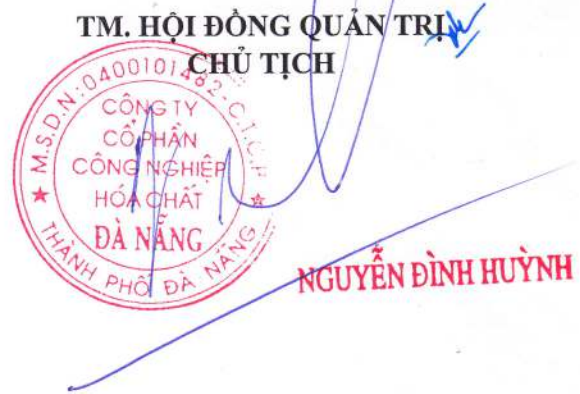 TM. HỘI ĐỒNG QUẢN TRỊ
CHỦ TỊCH
M.S.D.N:0400101482-C.T.C.P
CÔNG TY
CỔ PHẦN
CÔNG NGHIỆP
HÓA CHẤT
ĐÀ NẴNG
THÀNH PHỐ ĐÀ NẴNG
NGUYỄN ĐÌNH HUỲNH